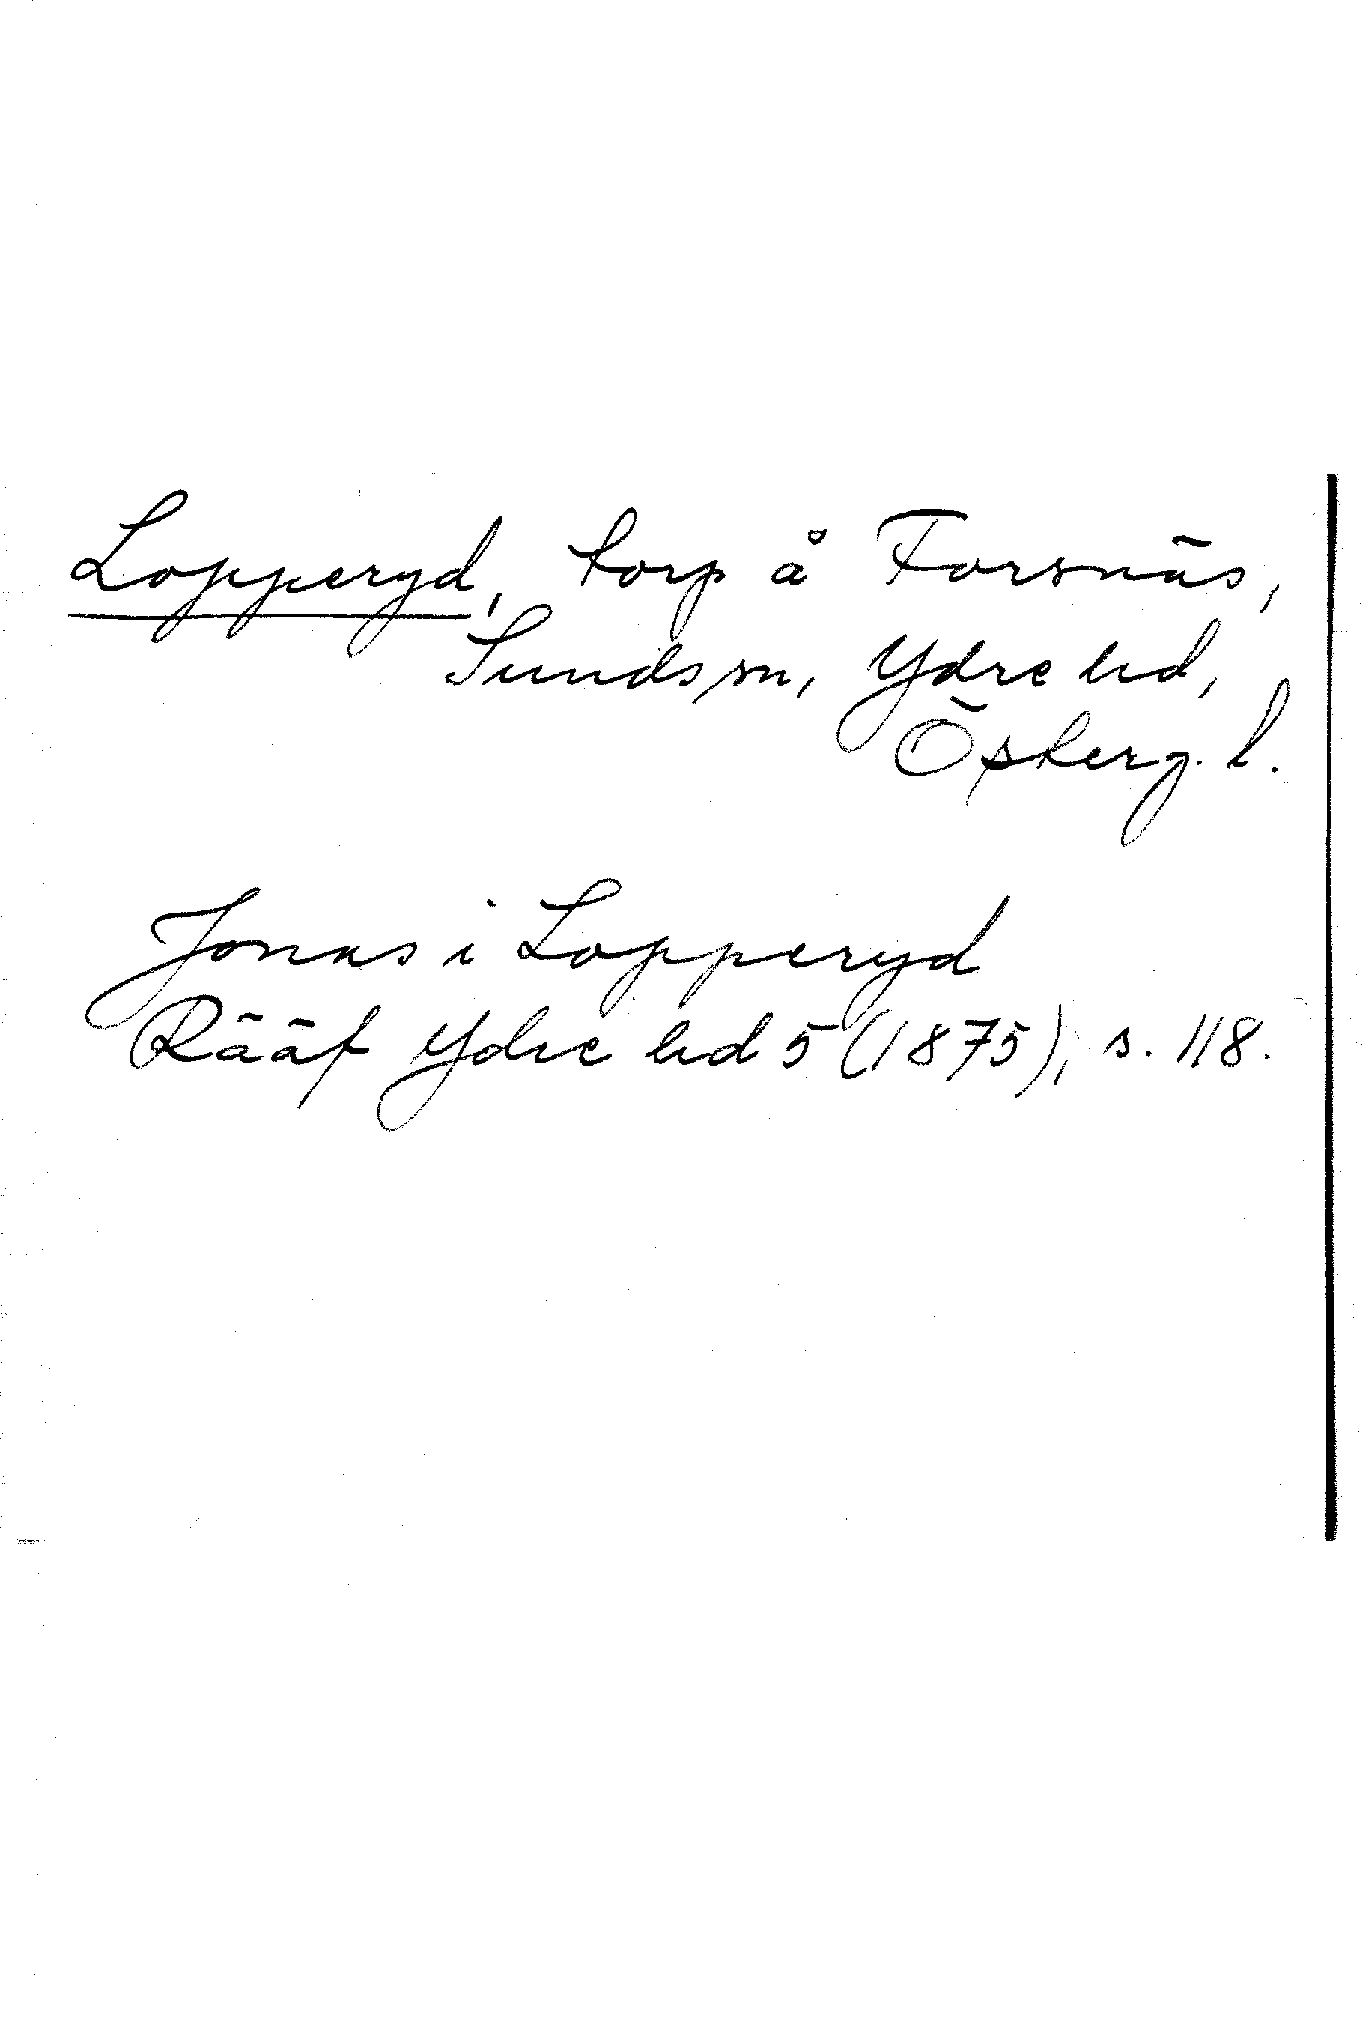 Lopperyd, torp å Forsnäs,
Sunds sn, Ydre hd,
Österg. l.
Jonas i Lopperyd
Rääf Ydre hd 5 (1875), s. 118.